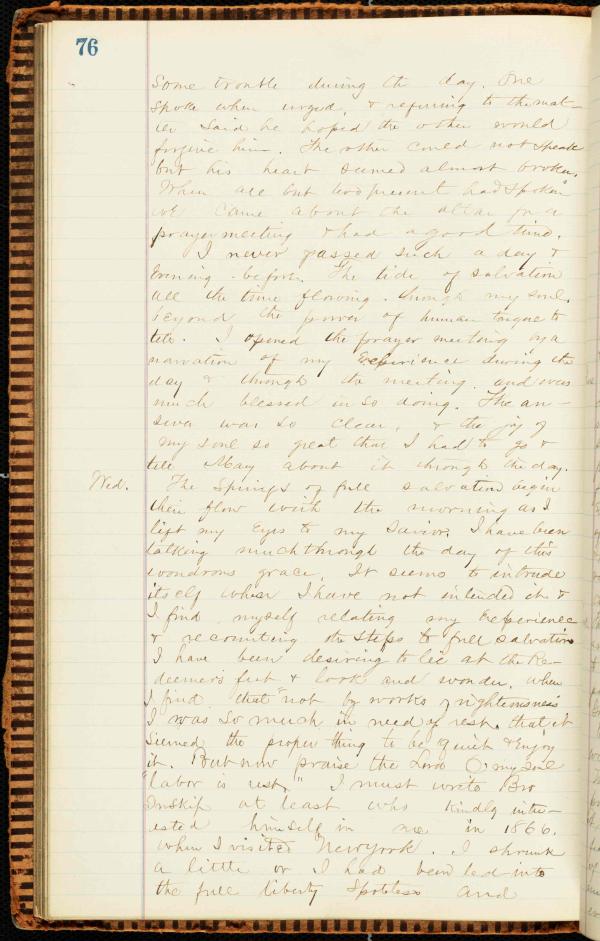 76
Some trouble during the day. One
spoke when urged, & refering to the mat-
ter said he hoped the other would
forgive him. The other could not speak
but his heart seemed almost broken.
When all but two present had spoken
we came about the altar for a
prayer meeting & had a good time.
I never passed such a day &
Evening before. The tide of salvation
all the time flowing through my soul.
Beyond the power of human tongue to
tell. I opened the prayer meeting by a
narration of my Experience during the
day & through the meeting and was
much blessed in so doing. The an-
swer was so clear, & the joy of
my soul so great that I had to go &
tell May about it through the day.
Wed. The Springs of full salvation begin
their flow with the morning as I
lift my Eyes to my Savior. I have been
talking much through the day of this
wondrous grace. It seems to intrude
itself when I have not intended it &
I find myself relating my Experience
& recounting the steps to full salvation
I have been desiring to lie at the Re-
deemer's feet & look and wonder, when
I find that "not by works of righteousness
I was so much in need of rest, that it
seemed the proper thing to be quiet & Enjoy
it. But now praise the Lord O my soul
"labor is rest." I must write Bro
Inskip at least who kindly inter-
ested himself in me in 1866.
when I visited New York. I shrunk
a little or I had been led into
the full liberty Spotless and